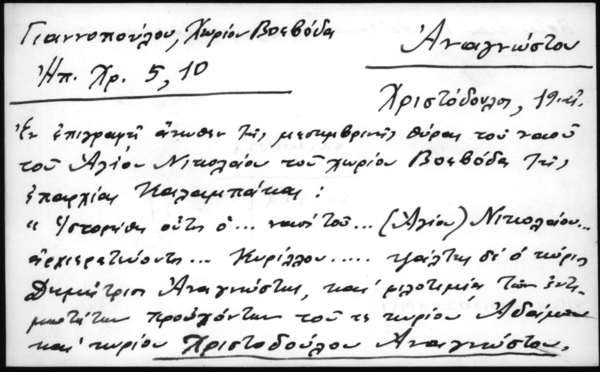 Γιαννοπούλου, Χωρίον Βοεβόδα
Ἠπ. Χρ. 5, 10
Ἀναγνώστου
Χριστόδουλος, 19
Ἐν ἐπιγραφῇ ἄνωθεν τῆς μεσημβρινῆς θύρας τοῦ ναοῦ
τοῦ Ἁγίου Νικολαίου τοῦ χωρίου Βοεβόδα τῆς
ἐπαρχίας Καλαμπάκας :
" Ἱστορήθη οὗτος ὁ ... ναός τοῦ ... (Ἁγίου) Νικολάου...
ἀρχιερατεύοντος ... Κυρίλλου ..... ψάλτης δέ ὁ κύριος
Δημήτριος Ἀναγνώστης, καί φιλοτιμίας τῶν ἐντι-
μοτάτων προυχόντων τοῦ τε κυρίου
καί κυρίου Χριστοδούλου Ἀναγνώστου.